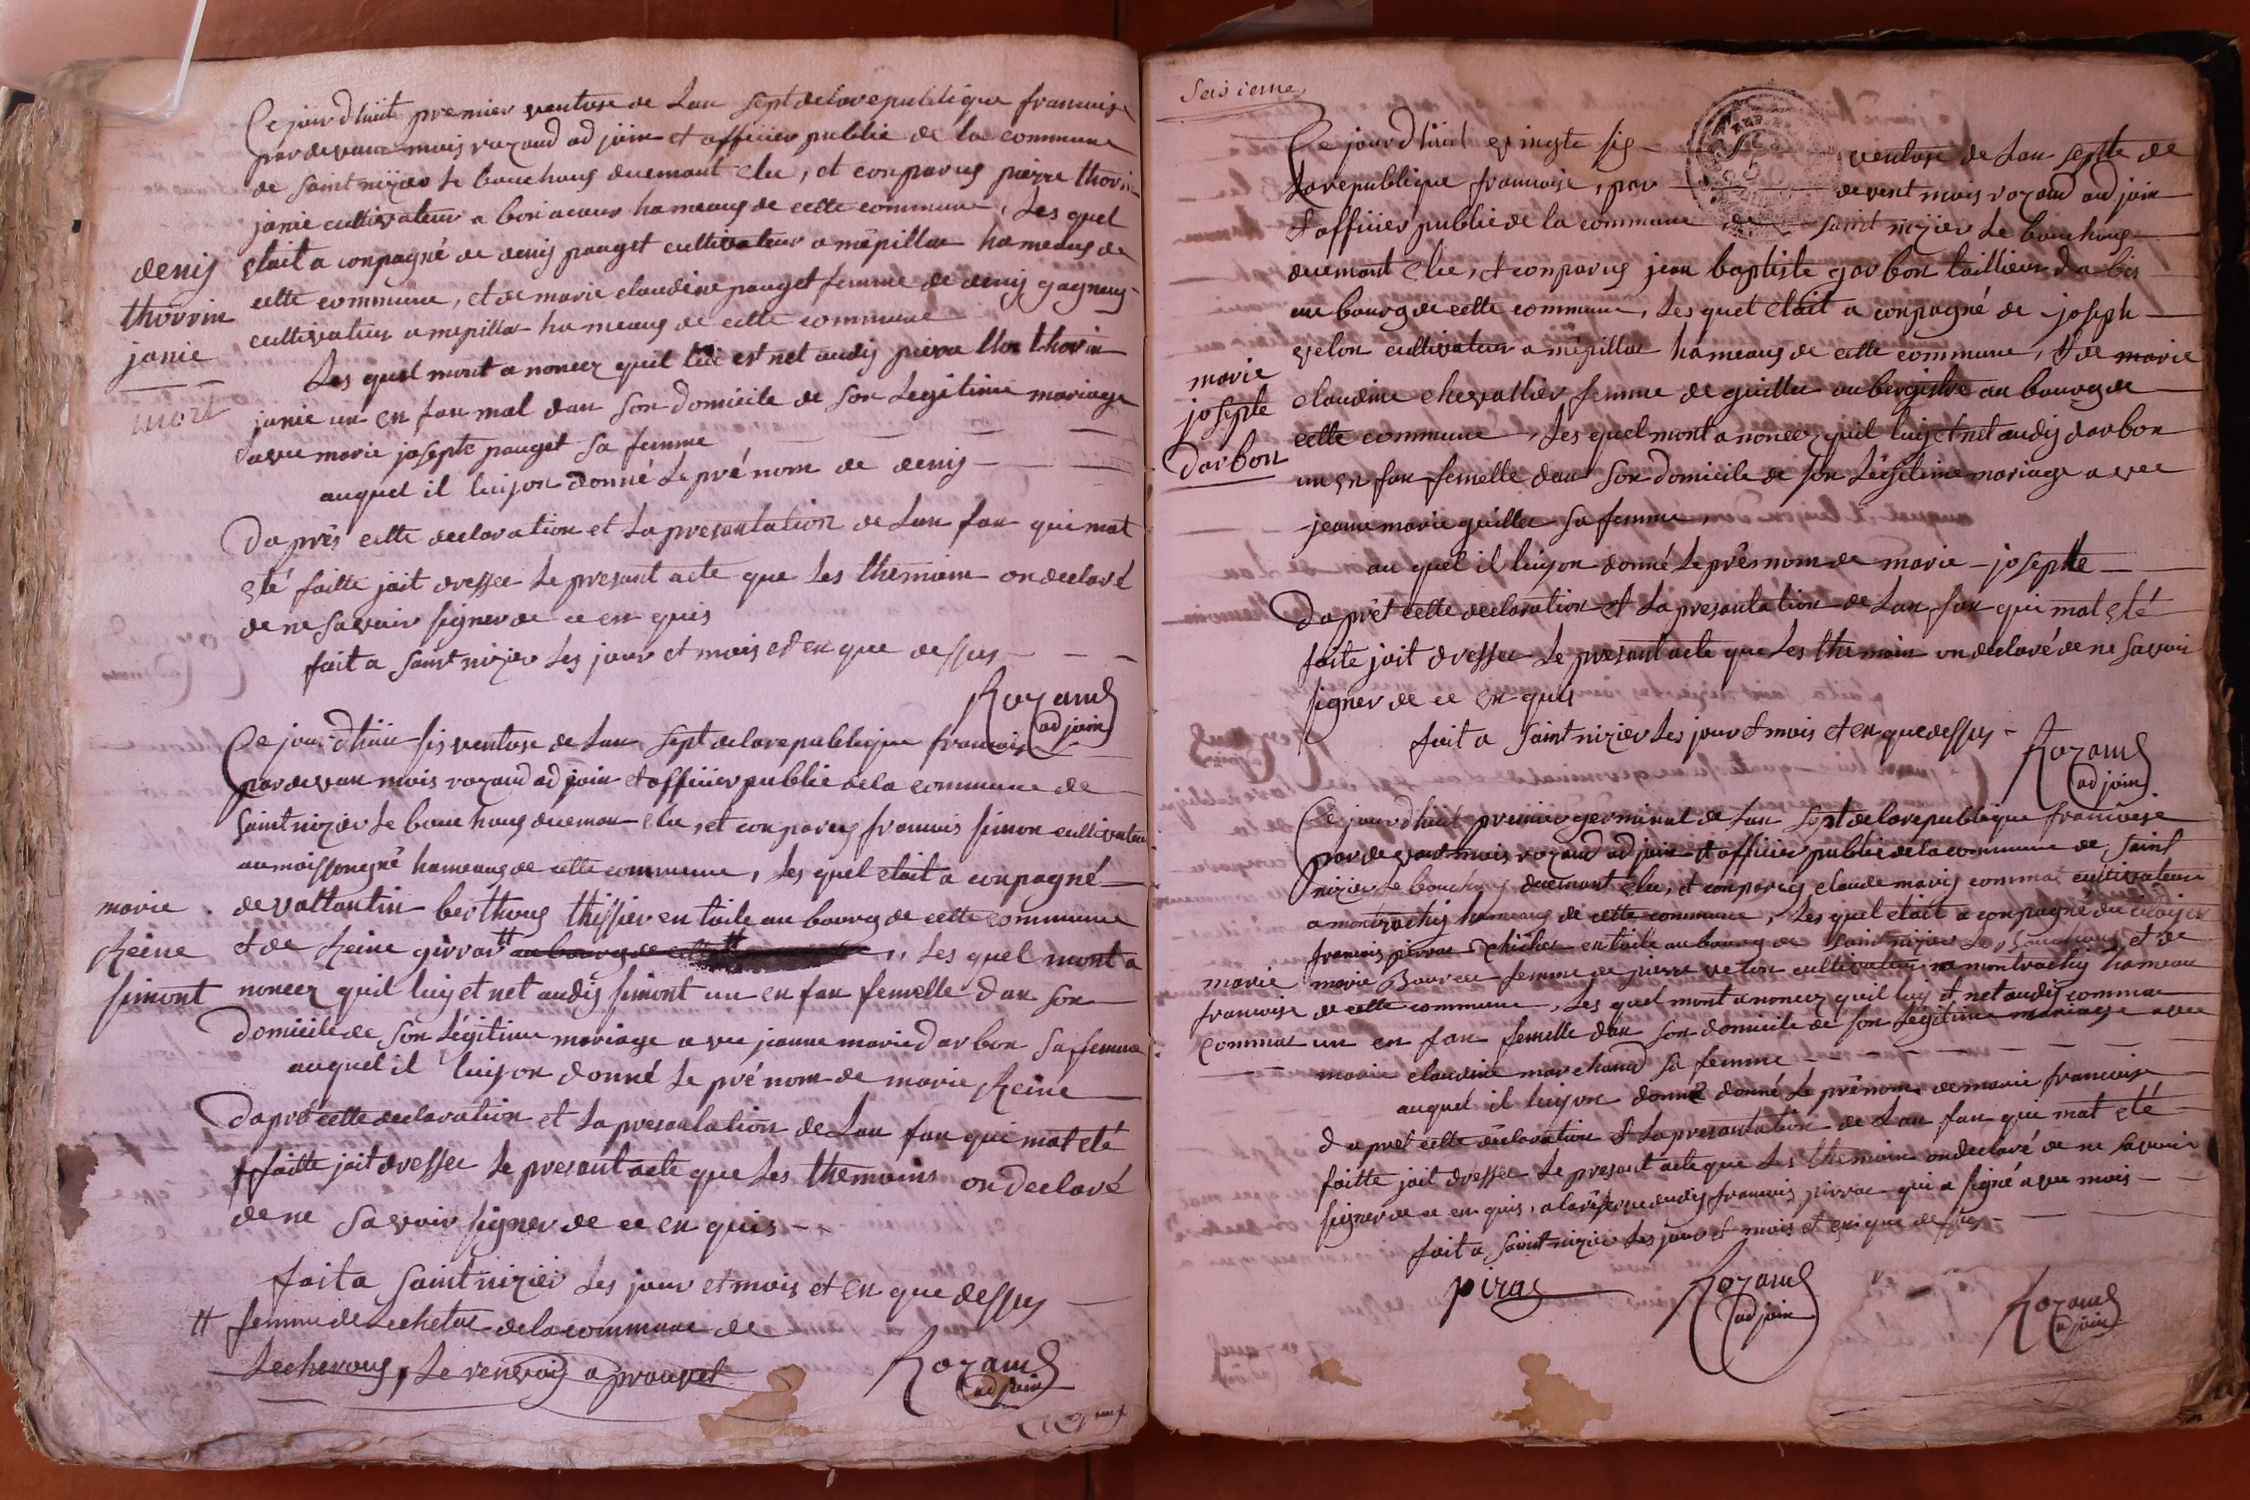 Ce jour dhuit premier ventose de Lan sept delarepublique francaise
pardevant mois rozand adjoin et officier public de la commune
de saint nizier le bouchoug duemant elu, et conparus pierre thorin
janie cultivateur a bonacour hameaug de cette commune, Les quel
denis
thorrin
janie
mort
etait a conpagné de denis pauget cultivateur a mépillac hameaug de
cette commune, et de marie claudine pauget femme de denis gagneug
cultivateur a mepillac hameaug de cette commune
Les quel mont a noncez quil lui est net audis pierre thorin
janie un en fan mal dan son domicile de son Legitime mariage
avec marie josepte pauget sa femme
auquel il luijon donné Le pré nom de denis
Daprès cette declaration et La presantation de Lan fan qui mat
eté faitte jait dressee Le presant acte que Les themoin on declaré
de ne savoir signer de ce en quis
fait a saint nizier Les jour et mois et en que dessus
Rozand
adjoin
Ce jour dhui sis ventose de Lan sept delarepublique francaise
pardevan mois rozand adjoin et officier public dela commune de
saint nizier Le bouchoug dueman elu, et conparus francois simon cultivateur
aumoissonegné hameaug de cette commune, Les quel etait a conpagné
marie
Reine
simont
de vallantin berthoug thissier en toile au bourg de cette commune
et de Reine girrar # au bourg de cette # Les quel mont a
noncez quil luy et net audis simont un en fan femelle dan son
domicile de son Légitime mariage avec jeanne marie darbon sa femme
auquel il luijon donné Le pré nom de marie Reine
Dapré cette declaration et La presantation de Lan fan qui mat eté
faitte jait dressee Le presant acte que Les themoins on declaré
de ne savoir signer de ce en quis
fait a saint nizier Les jour et mois et en que dessus
# femme de Lechetas de la commune de
Lecheroug, Le renvois aprouvet
Rozand
adjoin
Seisieme
Ce jour dhuit vingte sis ventose de Lan septe de
Larepublique francaise, par devent mois rozand adjoin
et officier public de la commune de saint nizier Le bouchoug
duemant elu, et conparus jean baptiste garbon taillieur dabis
au bourg de cette commune, Les quel etait a conpagné de joseph
velon cultivateur a mépillac hameaug de cette commune, et de marie
marie
josepte
Darbon
claudine chevallier femme de guillec aubergistre au bourg de
cette commune, Les quel mont a noncez quil luis et net audis darbon
un en fan femelle dan son domicile de son Légitime mariage avec
jeanne marie guillec sa femme,
au quel il luijon donné Le prénom de marie josepte
Daprèt cette declaration et La presantation de Lan fan qui mat eté
faite jait dressee Le presant acte que Les themoin on declaré de ne savoir
signer de ce en quis
fait a saint nizier Les jour et mois et en que dessus
Rozand
adjoin
Ce jour dhuit premier germinal de Lan sept delarepublique francaise
pardevant mois rozand adjoin et officier public dela commune de saint
nizier Le bouchoug duemant elu, et conparus claude maris commac cultivateur
a montrachis hameaug de cette commune, Les quel etait a conpagné du
francois pirrac au bourg de saint nizier Le bouchoug et de
marie
francoise
commac
marie Bourcec femme de pierre velon cultivateur a montrachis hameau
de cette commune, Les quel mont a noncez quil luis et net audis commac
un en fan femelle dan son domicile de son Légitime mariage avec
marie claudine marchand sa femme
auquel il luijon donné donné Le prénom de marie francoise
Daprèt cette déclaration et La presantation de Lan fan qui mat eté
faitte jait dressee Le presant acte que Les themoin on declaré de ne savoir
signer de ce en quis, a laréserve dudis francois pirrac qui a signé avec mois
fait a saint nizier Les jour et mois et en que dessus
piras
Rozand
adjoin
Rozand
adjoin